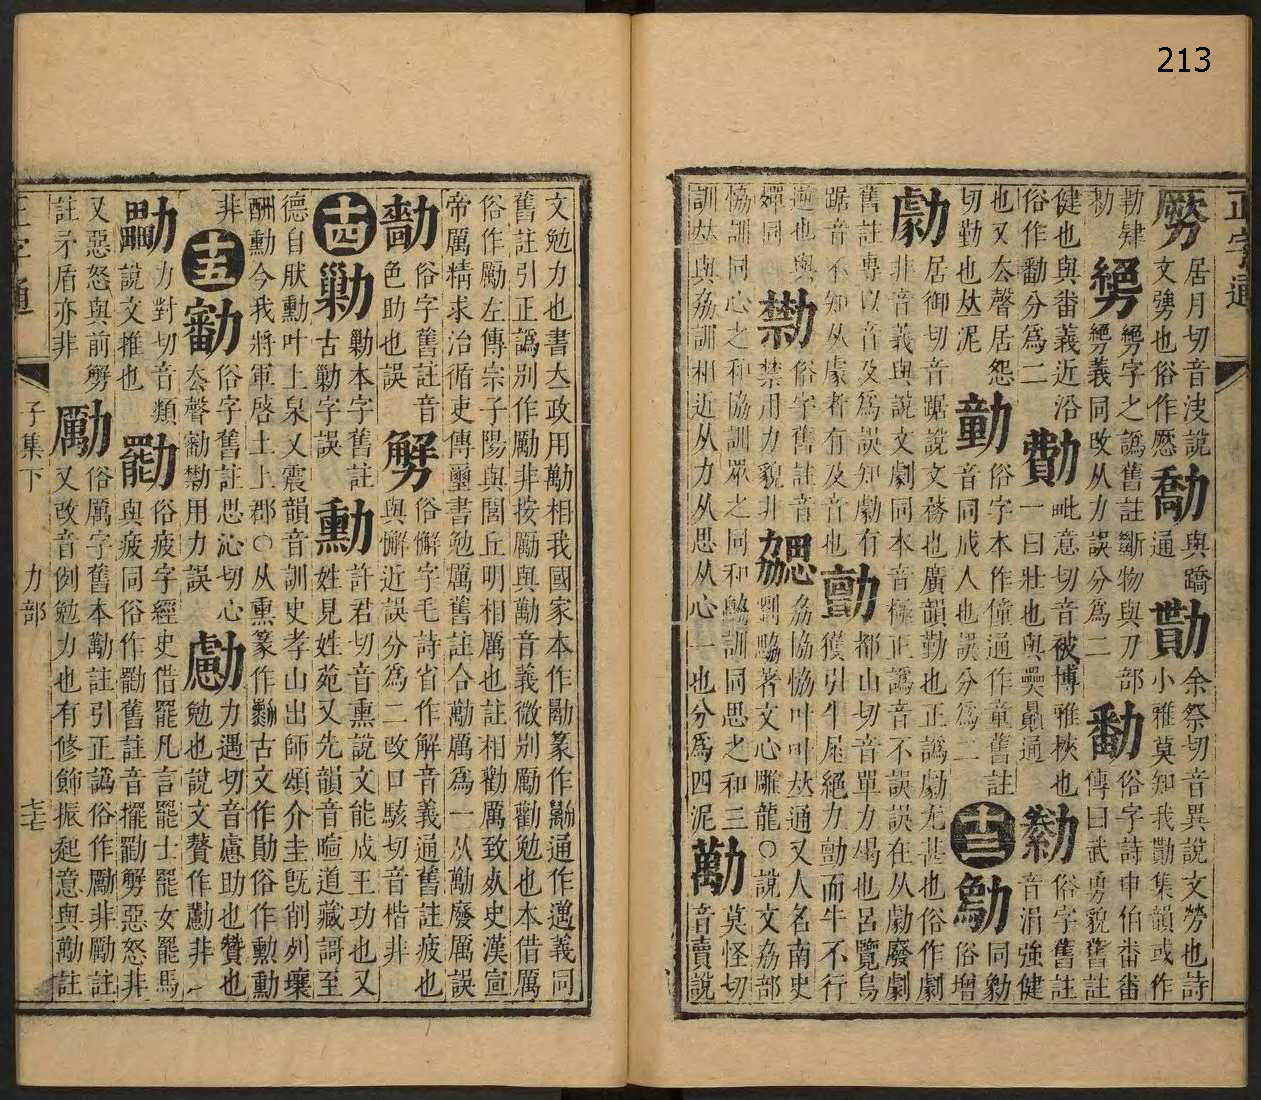 213
正字通
居月切音 說
文彊也俗作
勪
與蹻
通
勩
余祭切音異說文勞也詩
小雅莫知我勩集韻或作
勚肄
字之譌舊註斷物與刀部
義同改从力誤分爲二
勫
俗字詩申伯番番
傳曰武勇貌舊註
健也與番義近沿
俗作勫分爲二
毗意切音被博雅 也
一曰壯也與奰贔通
俗字舊註
音涓強健
也又去聲居怨
切勤也𠀤泥
勭
俗字本作僮通作童舊註
音同成人也誤分爲二
十二
俗增
勮
居御切音踞說文務也廣韻勤也正譌勮尤甚也俗作劇
非音義與說文劇同本音極正譌音不誤誤在从勮廢劇
舊註專以音及爲誤知勮有
踞音不知从豦者有及音也
勯
都山切音單力竭也呂覽烏
獲引牛尾絕力勯而牛不行
逆也與
嬋同
俗字舊註音
禁用力貌非
勰
劦協恊叶叶𠀤通又人名南史
劉勰著文心雕龍○說文劦部
恊訓同心之和協訓眾之同和勰訓同思之和三
訓𠀤與劦訓相近从力从思从心一也分爲四泥
勱
莫怪切
音賣說
文勉力也書立政用勱相我國家本作 篆作 通作邁義同
舊註引正譌別作勵非按勵與勱音義微別勵勸勉也本借厲
俗作勵左傳宗子陽與閭丘明相厲也註相勸厲致死史漢宣
帝厲精求治循吏傳璽書勉厲舊註合勱厲爲一从勱廢厲誤
俗字舊註音
色助也誤
俗懈字毛詩省作解音義通舊註疲也
與懈近誤分爲二改口駭切音楷非
十四
勦
勦本字舊註
古勦字誤
勳
許君切音熏說文能成王功也又
姓見姓苑又先韻音暄道藏謌至
德自肰勳叶上泉又震韻音訓史孝山出師頌介圭旣削列壤
酬勳今我將軍啓土上郡○从熏篆作 古文作勛俗作勲勳
非
十五
俗字舊註思沁切心
去聲 用力誤
勴
力遇切音慮助也贊也
勉也說文贊作勴非
力對切音類
說文推也
俗疲字經史借罷凡言罷士罷女罷馬
與疲同俗作 舊註音擺 惡怒非
又惡怒與前
註矛盾亦非
勵
俗厲字舊本勱註引正譌俗作勵非勵註
又改音例勉力也有修飾振起意與勱註
正字通
子集下
力部